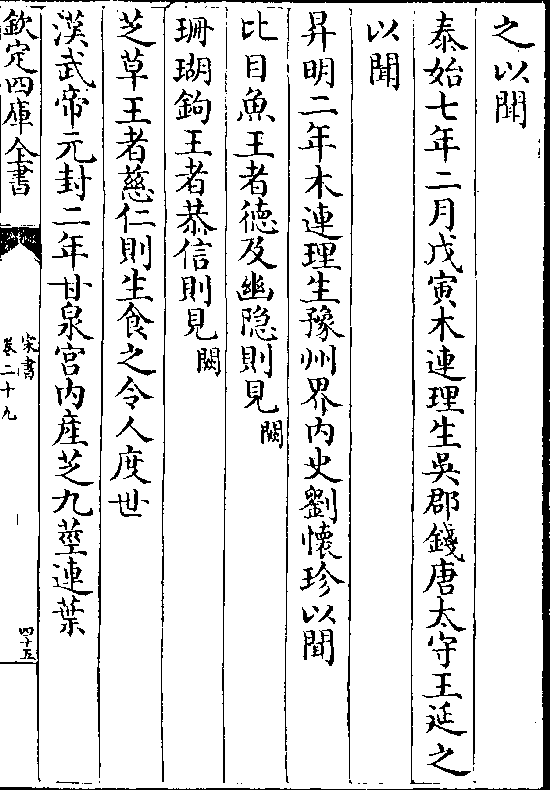 之以聞
泰始七年二月戊寅木連理生吳郡錢唐太守王延之
以聞
昇明二年木連理生豫州界内史劉懷珍以聞
比目魚王者徳及幽隠則見闕
珊瑚鉤王者恭信則見闕
芝草王者慈仁則生食之令人度世
漢武帝元封二年甘泉宫内産芝九莖連葉
欽定四庫全書
宋書
卷二十九
四十五